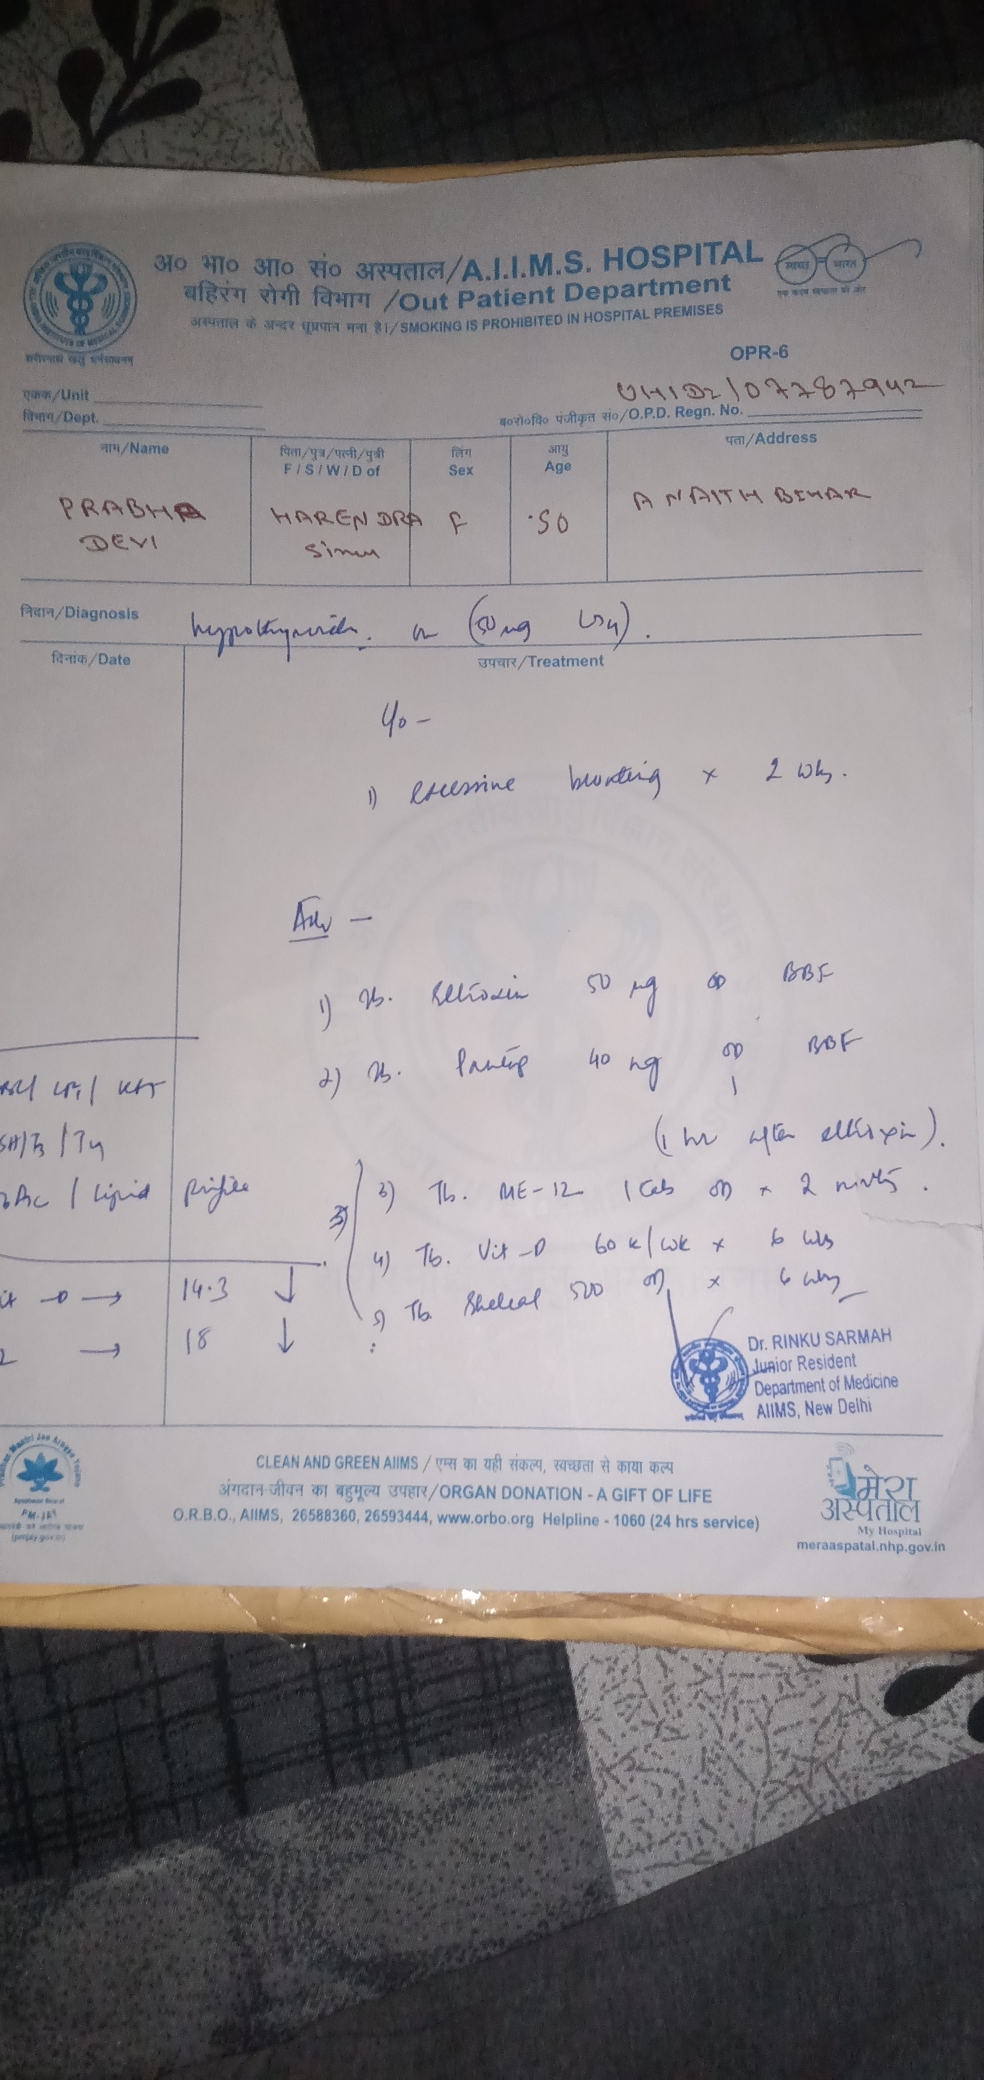 अ० भा० आ० सं० अस्पताल/A.I.I.M.S. HOSPITAL
बहिरंग रोगी विभाग /Out Patient Department
अस्पताल के अन्दर धूम्रपान मना है।/SMOKING IS PROHIBITED IN HOSPITAL PREMISES
स्वच्छ भारत
एक कदम स्वच्छता की ओर
OPR-6
एकक/Unit
विभाग/Dept.
ब०रो०वि० पंजीकृत सं०/O.P.D. Regn. No.
107787942
नाम/Name
पिता/पुत्र/पत्नी/पुत्री
F/S/W/D of
लिंग
Sex
आयु
Age
पता/Address
PRABHA
DEVI
HARENDRA
F
50
ANAITH BIHAR
निदान/Diagnosis
(50 µg
दिनांक/Date
उपचार/Treatment
1) excessive × 2 wks.
Adv —
1) Tb. 50 µg OD BBF
2) Tb. 40 mg OD BBF
(1 hr after
/ T3 / T4
/ Lipid profile
3) Tb. ME-12 1 tab OD × 2
4) Tb. Vit-D 60 k/wk × 6 wks
5) Tb. Shelcal 500 OD × 6 wks
-D → 14.3 ↓
→ 18 ↓
Dr. RINKU SARMAH
Junior Resident
Department of Medicine
AIIMS, New Delhi
CLEAN AND GREEN AIIMS / एम्स का यही संकल्प, स्वच्छता से काया कल्प
अंगदान-जीवन का बहुमूल्य उपहार/ORGAN DONATION - A GIFT OF LIFE
O.R.B.O., AIIMS, 26588360, 26593444, www.orbo.org Helpline - 1060 (24 hrs service)
PM-JAY
मेरा
अस्पताल
My Hospital
meraaspatal.nhp.gov.in